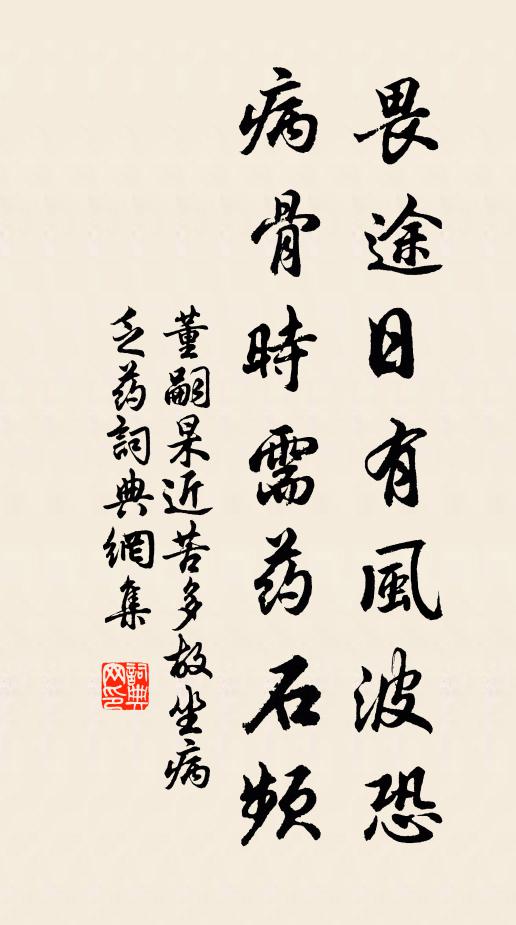 畏途日有風波恐
病骨時需药石頻
董嗣杲近苦多故坐病
乏药詞典網集
詞典網印